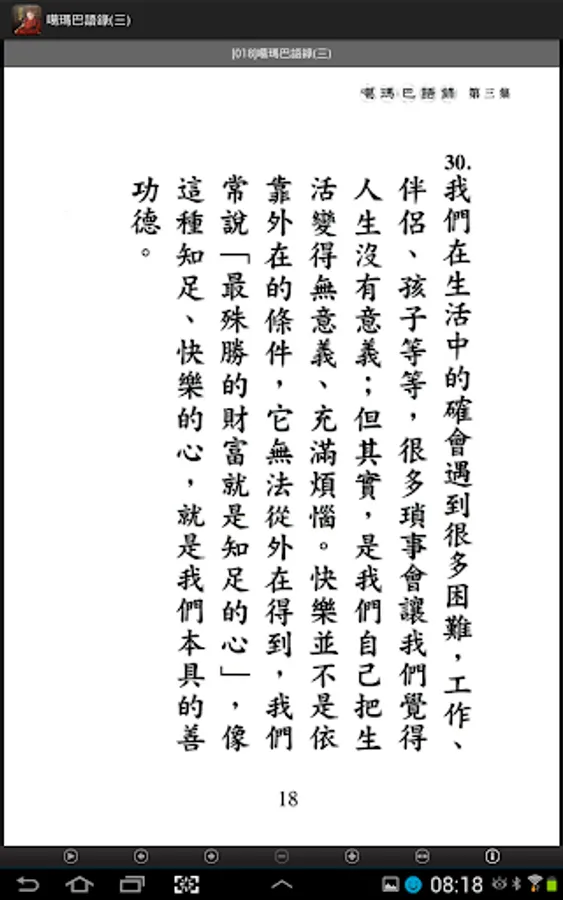 噶瑪巴語錄(三)
[018]噶瑪巴語錄(三)
噶瑪巴語錄 第三集
30.
我們在生活中的確會遇到很多困難，工作、
伴侶、孩子等等，很多瑣事會讓我們覺得
人生沒有意義；但其實，是我們自己把生
活變得無意義、充滿煩惱。快樂並不是依
靠外在的條件，它無法從外在得到，我們
常說「最殊勝的財富就是知足的心」，像
這種知足、快樂的心，就是我們本具的善
功德。
18
08:18